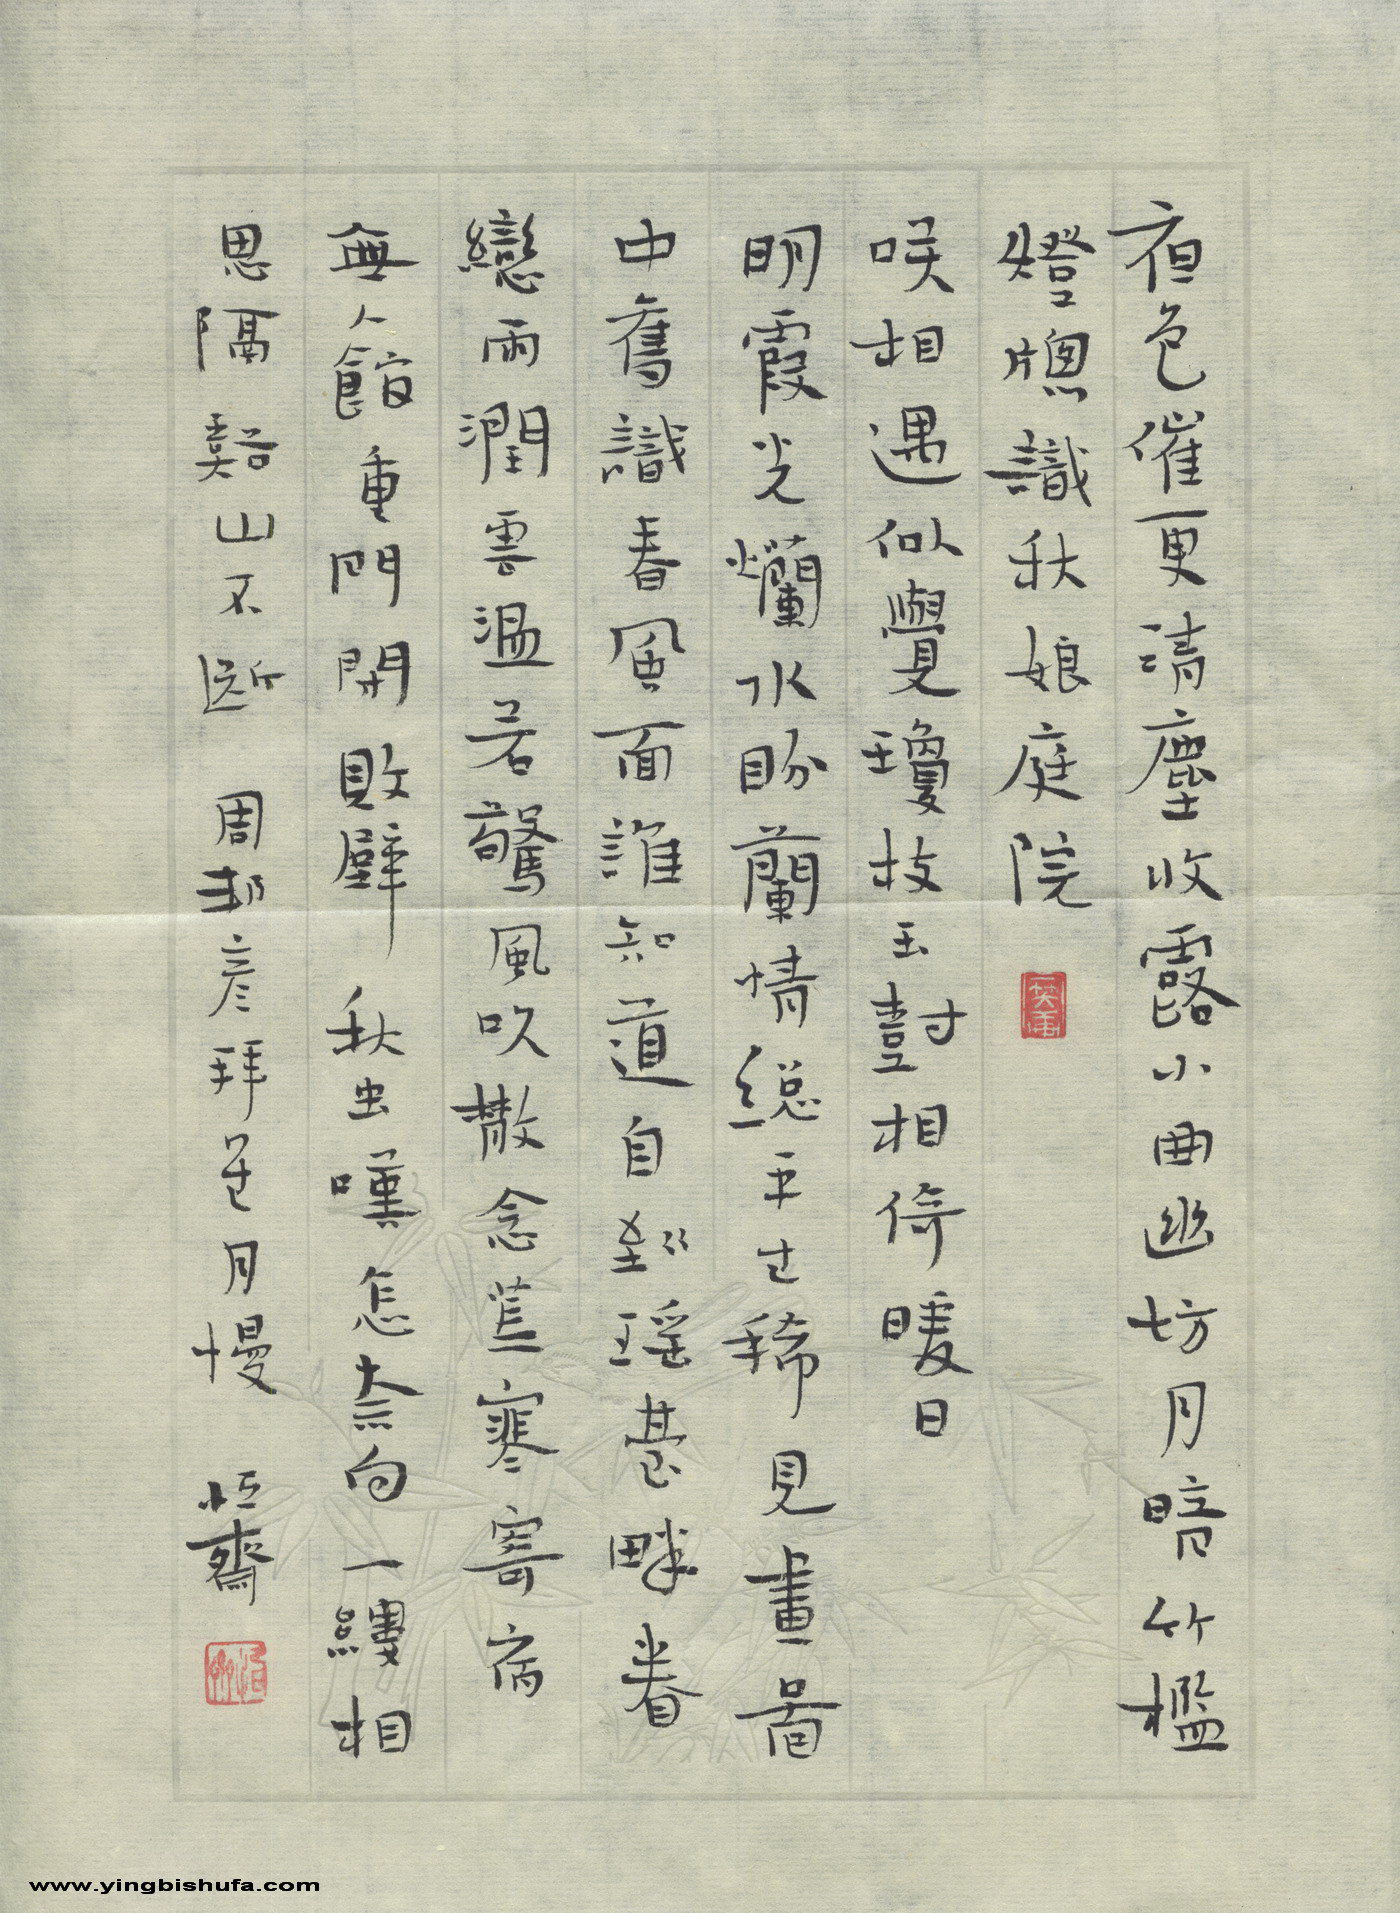 夜色催更清塵收露小曲幽坊月暗竹檻
燈牕識秋娘庭院
咲相遇似覺瓊枝玉對相倚暖日
明霞光爛水盼蘭情緫平生稀見畫啚
中舊識春風面誰知道自到瑶臺畔眷
戀雨潤雲溫苦驚風吹散念荒寒寄病
無人館重門閉敗壁秋虫嘆怎柰向一縷相
思隔谿山不断 周邦彦拜星月慢 恒齋
www.yingbishufa.com